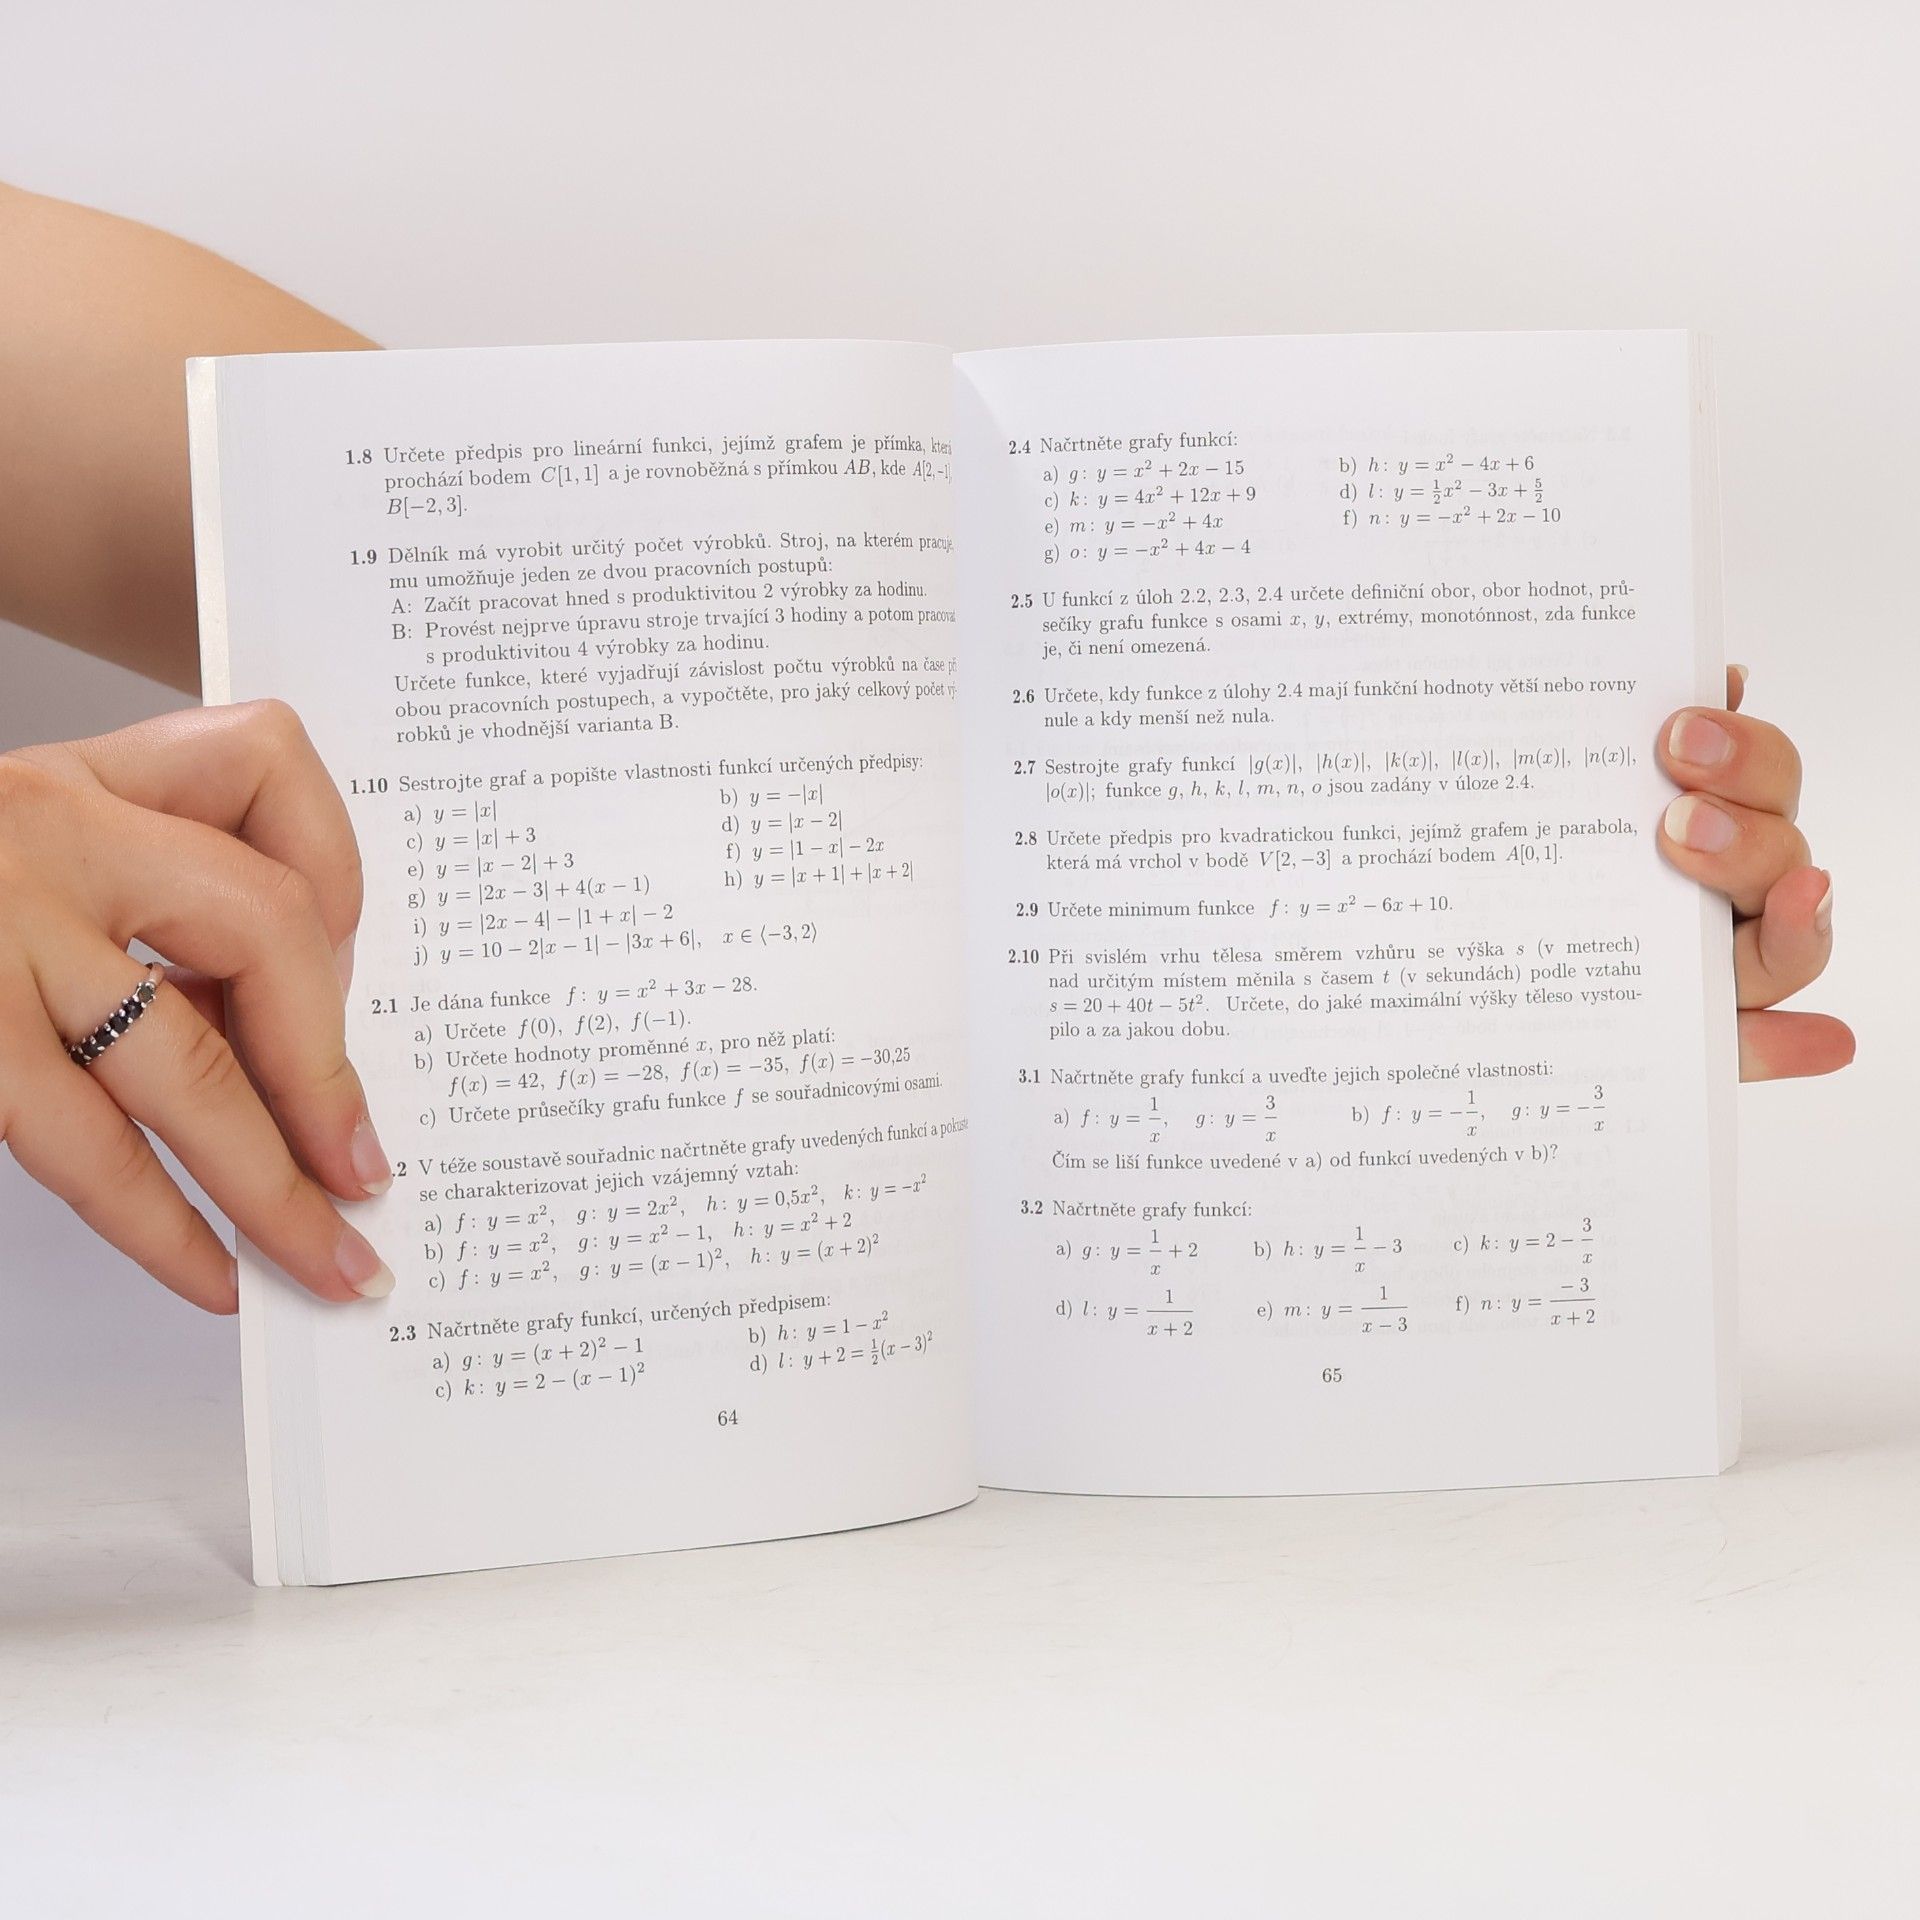 1.8 Určete předpis pro lineární funkci, jejímž grafem je přímka, která
prochází bodem C[1, 1] a je rovnoběžná s přímkou AB, kde A[2, −1],
B[−2, 3].
1.9 Dělník má vyrobit určitý počet výrobků. Stroj, na kterém pracuje,
mu umožňuje jeden ze dvou pracovních postupů:
A: Začít pracovat hned s produktivitou 2 výrobky za hodinu.
B: Provést nejprve úpravu stroje trvající 3 hodiny a potom pracovat
s produktivitou 4 výrobky za hodinu.
Určete funkce, které vyjadřují závislost počtu výrobků na čase při
obou pracovních postupech, a vypočtěte, pro jaký celkový počet vý-
robků je vhodnější varianta B.
1.10 Sestrojte graf a popište vlastnosti funkcí určených předpisy:
a) y = |x| b) y = −|x|
c) y = |x| + 3 d) y = |x − 2|
e) y = |x − 2| + 3 f) y = |1 − x| − 2x
g) y = |2x − 3| + 4(x − 1) h) y = |x + 1| + |x + 2|
i) y = |2x − 4| − |1 + x| − 2
j) y = 10 − 2|x − 1| − |3x + 6|, x ∈ ⟨−3, 2⟩
2.1 Je dána funkce f : y = x² + 3x − 28.
a) Určete f(0), f(2), f(−1).
b) Určete hodnoty proměnné x, pro něž platí:
f(x) = 42, f(x) = −28, f(x) = −35, f(x) = −30,25
c) Určete průsečíky grafu funkce f se souřadnicovými osami.
.2 V téže soustavě souřadnic načrtněte grafy uvedených funkcí a pokuste
se charakterizovat jejich vzájemný vztah:
a) f : y = x², g : y = 2x², h : y = 0,5x², k : y = −x²
b) f : y = x², g : y = x² − 1, h : y = x² + 2
c) f : y = x², g : y = (x − 1)², h : y = (x + 2)²
2.3 Načrtněte grafy funkcí, určených předpisem:
a) g : y = (x + 2)² − 1 b) h : y = 1 − x²
c) k : y = 2 − (x − 1)² d) l : y + 2 = ½(x − 3)²
64
2.4 Načrtněte grafy funkcí:
a) g : y = x² + 2x − 15 b) h : y = x² − 4x + 6
c) k : y = 4x² + 12x + 9 d) l : y = ½x² − 3x + 5/2
e) m : y = −x² + 4x f) n : y = −x² + 2x − 10
g) o : y = −x² + 4x − 4
2.5 U funkcí z úloh 2.2, 2.3, 2.4 určete definiční obor, obor hodnot, prů-
sečíky grafu funkce s osami x, y, extrémy, monotónnost, zda funkce
je, či není omezená.
2.6 Určete, kdy funkce z úlohy 2.4 mají funkční hodnoty větší nebo rovny
nule a kdy menší než nula.
2.7 Sestrojte grafy funkcí |g(x)|, |h(x)|, |k(x)|, |l(x)|, |m(x)|, |n(x)|,
|o(x)|; funkce g, h, k, l, m, n, o jsou zadány v úloze 2.4.
2.8 Určete předpis pro kvadratickou funkci, jejímž grafem je parabola,
která má vrchol v bodě V[2, −3] a prochází bodem A[0, 1].
2.9 Určete minimum funkce f : y = x² − 6x + 10.
2.10 Při svislém vrhu tělesa směrem vzhůru se výška s (v metrech)
nad určitým místem měnila s časem t (v sekundách) podle vztahu
s = 20 + 40t − 5t². Určete, do jaké maximální výšky těleso vystou-
pilo a za jakou dobu.
3.1 Načrtněte grafy funkcí a uveďte jejich společné vlastnosti:
a) f : y = 1/x, g : y = 3/x b) f : y = −1/x, g : y = −3/x
Čím se liší funkce uvedené v a) od funkcí uvedených v b)?
3.2 Načrtněte grafy funkcí:
a) g : y = 1/x + 2 b) h : y = 1/x − 3 c) k : y = 2 − 3/x
d) l : y = 1/(x + 2) e) m : y = 1/(x − 3) f) n : y = −3/(x + 2)
65